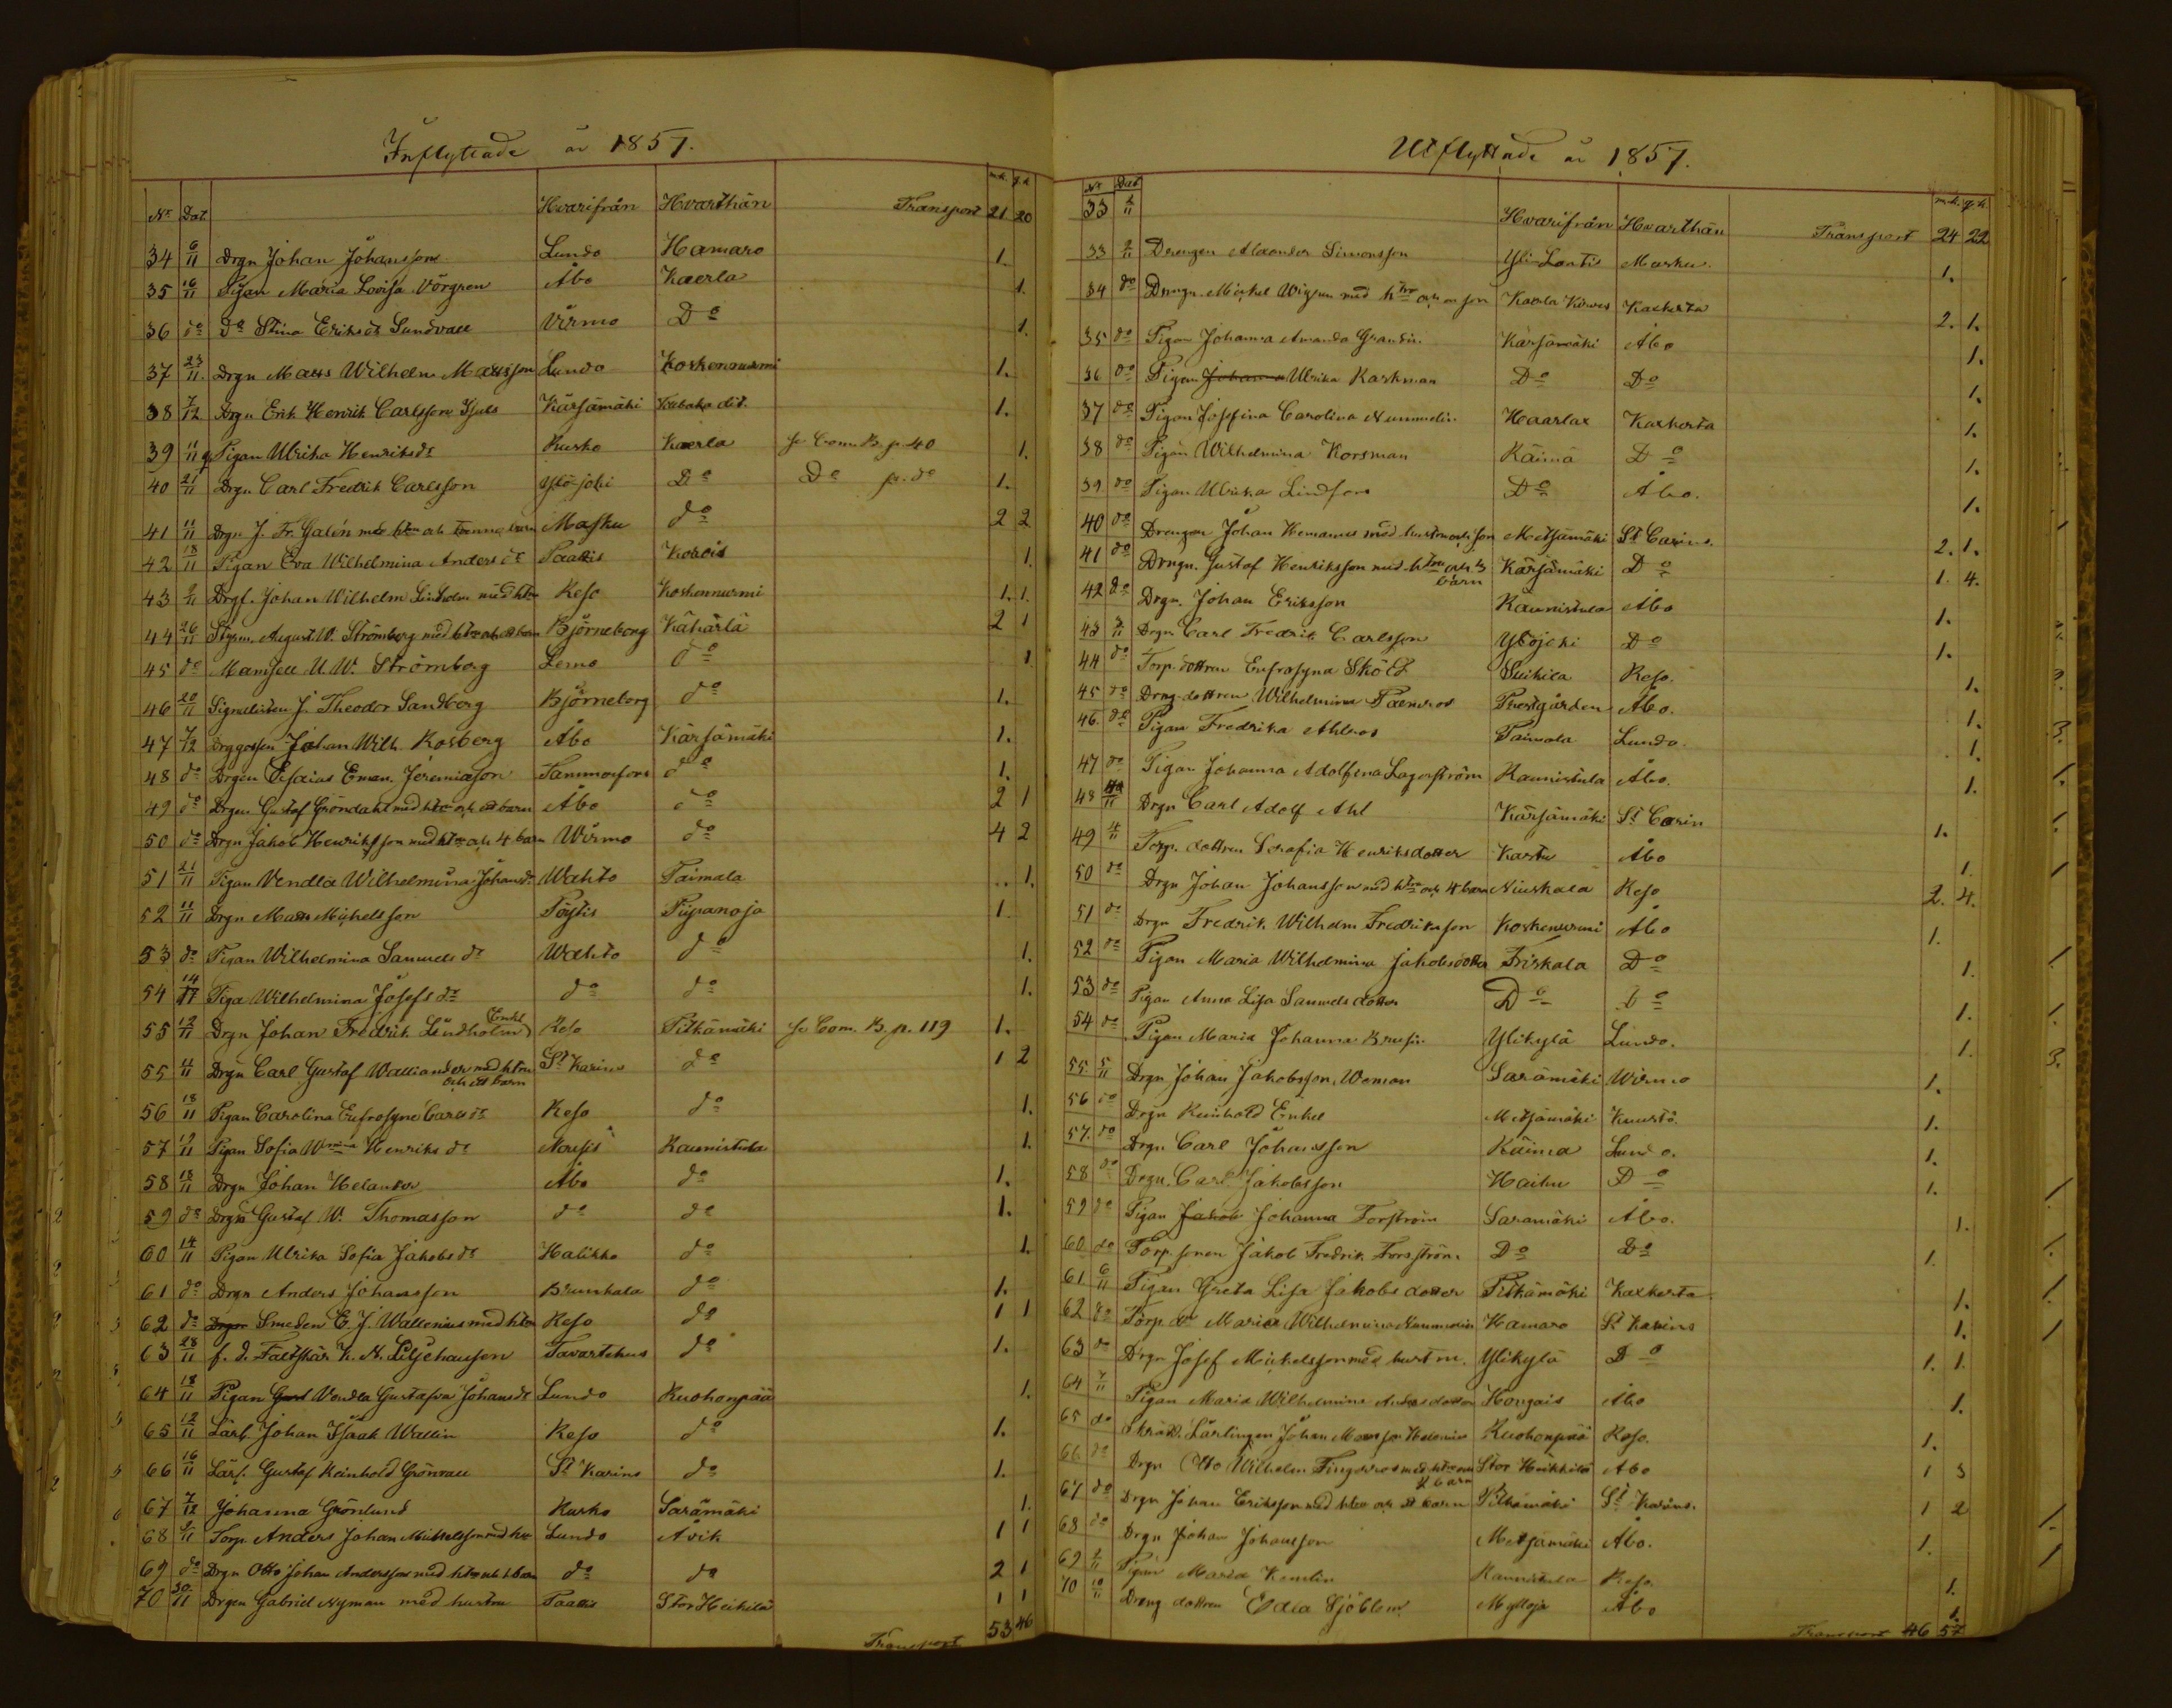 Inflyttade år 1857.
No Dat. Hvarifrån Hvarthän Transport mk. qk. 21 20
34 6/11 Drgn Johan Johansson Lundo Hamaro 1.
35 16/11 Pigan Maria Lovisa Vörgren Åbo Kaerla 1.
36 do do Stina Eriksdr Sundvall Virmo Do 1.
37 23/11 Drgn Matts Wilhelm Mattsson Lundo Koskennurmi 1.
38 7/12 Drgn Erik Henrik Carlsson Kärsämäki 1.
39 11/11 Pigan Ulrika Henriksdr Rusko Kaerla se Com. B. p. 40 1.
40 21/11 Drgn Carl Fredrik Carlsson Yltöjoki Do Do p. do 1.
41 11/11 Drgn J. Fr. Galén med htru och tvenne barn Masku do 2 2
42 18/11 Pigan Eva Wilhelmina Andersdr Paattis Korois 1.
43 2/11 Johan Wilhelm Lindholm med htru Reso Koskennurmi 1. 1.
44 26/11 Styrm. August W. Strömberg med htru och ett barn Björneborg Kähärlä 2 1
45 do Mamsell U. W. Strömberg Lemo do 1
46 20/11 Signalisten J. Theodor Sandberg Björneborg do 1.
47 7/12 Drggossen Johan Wilh. Rosberg Åbo Kärsämäki 1.
48 do Drgen Esaias Eman. Jeremiason Tammerfors do 1.
49 do Drgen Gustaf Gröndahl med htru och ett barn Åbo do 2 1
50 do Drgn Jakob Henriksson med htru och 4 barn Wirmo do 4 2
51 21/11 Pigan Vendla Wilhelmina Johansdr Wahto Taimala 1.
52 11/11 Drgn Matts Michelsson Pöytis Piipanoja 1
53 do Pigan Wilhelmina Samuelsdr Wahto do 1.
54 14/11 Piga Wilhelmina Josefsdr do do 1.
55 12/11 Drgn Johan Fredrik Lindholm Enkl Reso Pitkämäki se Com. B. p. 119 1.
55 4/11 Drgn Carl Gustaf Walliander med htru och ett barn St Karins do 1 2
56 18/11 Pigan Carolina Eufrosyne Carlsdr Reso do 1.
57 12/11 Pigan Sofia Wmina Henriksdr Nousis Raunistula 1.
58 18/11 Drgn Johan Helander Åbo do 1.
59 do Drgn Gustaf W. Thomasson do do 1.
60 14/11 Pigan Ulrika Sofia Jakobsdr Halikko do 1.
61 do Drgn Anders Johansson Brunkala do 1.
62 do Drgn Smeden E. J. Wallenius med htru Reso do 1 1
63 28/11 f. d. Fältskär K. N. Liljehausen Tavastehus do 1.
64 18/11 Pigan Vendla Gustafva Johansdr Lundo Ruohonpää 1.
65 12/11 Lärl. Johan Isaak Wallin Reso do 1.
66 16/11 Lärl. Gustaf Reinhold Grönvall St Karins do 1.
67 7/12 Johanna Grönlund Rusko Saramäki 1.
68 2/11 Torp. Anders Johan Mickelsson med htru Lundo Avik 1 1
69 do Drgn Otto Johan Andersson med htru och 1 barn do do 2 1
70 30/11 Drgen Gabriel Nyman med hustru Paattis Stor Heikilä 1 1
Transport 53 46
Utflyttade år 1857.
No Dat Hvarifrån Hvarthän Transport mk. qk. 24 22
33 2/11
33 2/11 Drengen Alexander Simonsson Yli-Lontis Masku 1.
34 do Drengn. Mickel Wigren med htru och en son Kaerla Kaskerta 2. 1.
35 do Pigan Johanna Amanda Grandin Kärsämäki Åbo 1.
36 do Pigan Johanna Ulrika Karkman Do Do 1.
37 do Pigan Josefina Carolina Nummelin Haarlax Kaxkerta 1.
38 do Pigan Wilhelmina Korsman Räimä Do 1.
39 do Pigan Ulrika Lindfors Do Åbo. 1.
40 do Drengen Johan Hemanus med hustru och son Metsämäki St Carins. 2. 1.
41 do Drngn. Gustaf Henriksson med htru och 3 barn Kärsämäki Do 1. 4.
42 do Drgn. Johan Eriksson Raunistula Åbo 1.
43 3/11 Drgn Carl Fredrik Carlsson Yltöjoki Do 1.
44 do Torp. dottren Eufrosyna Sköld Suikila Reso. 1.
45 do Drng. dottren Wilhelmina Palmroos Prestgården Åbo. 1.
46. do Pigan Fredrika Ahlroos Taimola Lundo. 1.
47 do Pigan Johanna Adolfina Lagerström Raunistula Åbo. 1.
48 Drgn Carl Adolf Ahl Kärsämäki St Carin 1.
49 4/11 Torp. dottren Serafia Henriksdotter Kastu Åbo 1.
50 do Drgn Johan Johansson med htru och 4 barn Niuskala Reso 2. 4.
51 do Drgn Fredrik Wilhelm Fredriksson Koskennurmi Åbo 1.
52 do Pigan Maria Wilhelmina Jakobsdotter Friskala Do 1.
53 do Pigan Anna Lisa Samuelsdotter Do Do 1.
54 do Pigan Maria Johanna Brusin Ylikylä Lundo. 1.
55 5/11 Drgn Johan Jakobsson Woman Saramäki Wirmo 1.
56 do Drgn Reinhold Enkel Metsämäki Kuustö. 1.
57. do Drgn. Carl Johansson Räimä Lundo. 1.
58 do Drgn. Carl Jakobsson Haihu Do 1.
59 do Pigan Jakob Johanna Forström Saramäki Åbo. 1.
60 do Torp. sonen Jakob Fredrik Forsström Do Do 1.
61 6/11 Pigan Greta Lisa Jakobsdotter Pitkämäki Kaxkerta 1.
62 do Torp. dr Maria Wilhelmina Nummelin Hamaro St Karins 1.
63 do Drgn Josef Mickelsson med hustru. Ylikylä Do 1. 1.
64 7/11 Pigan Maria Wilhelmina Andersdotter Hongais Åbo 1.
65 do Skrädd. Lärlingen Johan Matsson Helenius Ruohonpää Reso. 1.
66 do Drgn Otto Wilhelm Tingeroos med htru och 2 barn Stor Heikkilä Åbo 1 3
67 do Drgn Johan Eriksson med htru och ett barn Pitkämäki St Karins. 1 2
68 do Drgn Johan Johansson Metsämäki Åbo. 1.
69 2/11 Pigan Maria Kemlin Raunistula Reso. 1.
70 10/11 Dreng dottren Edla Sjöblom Mylloja Åbo 1.
Transport 46 57